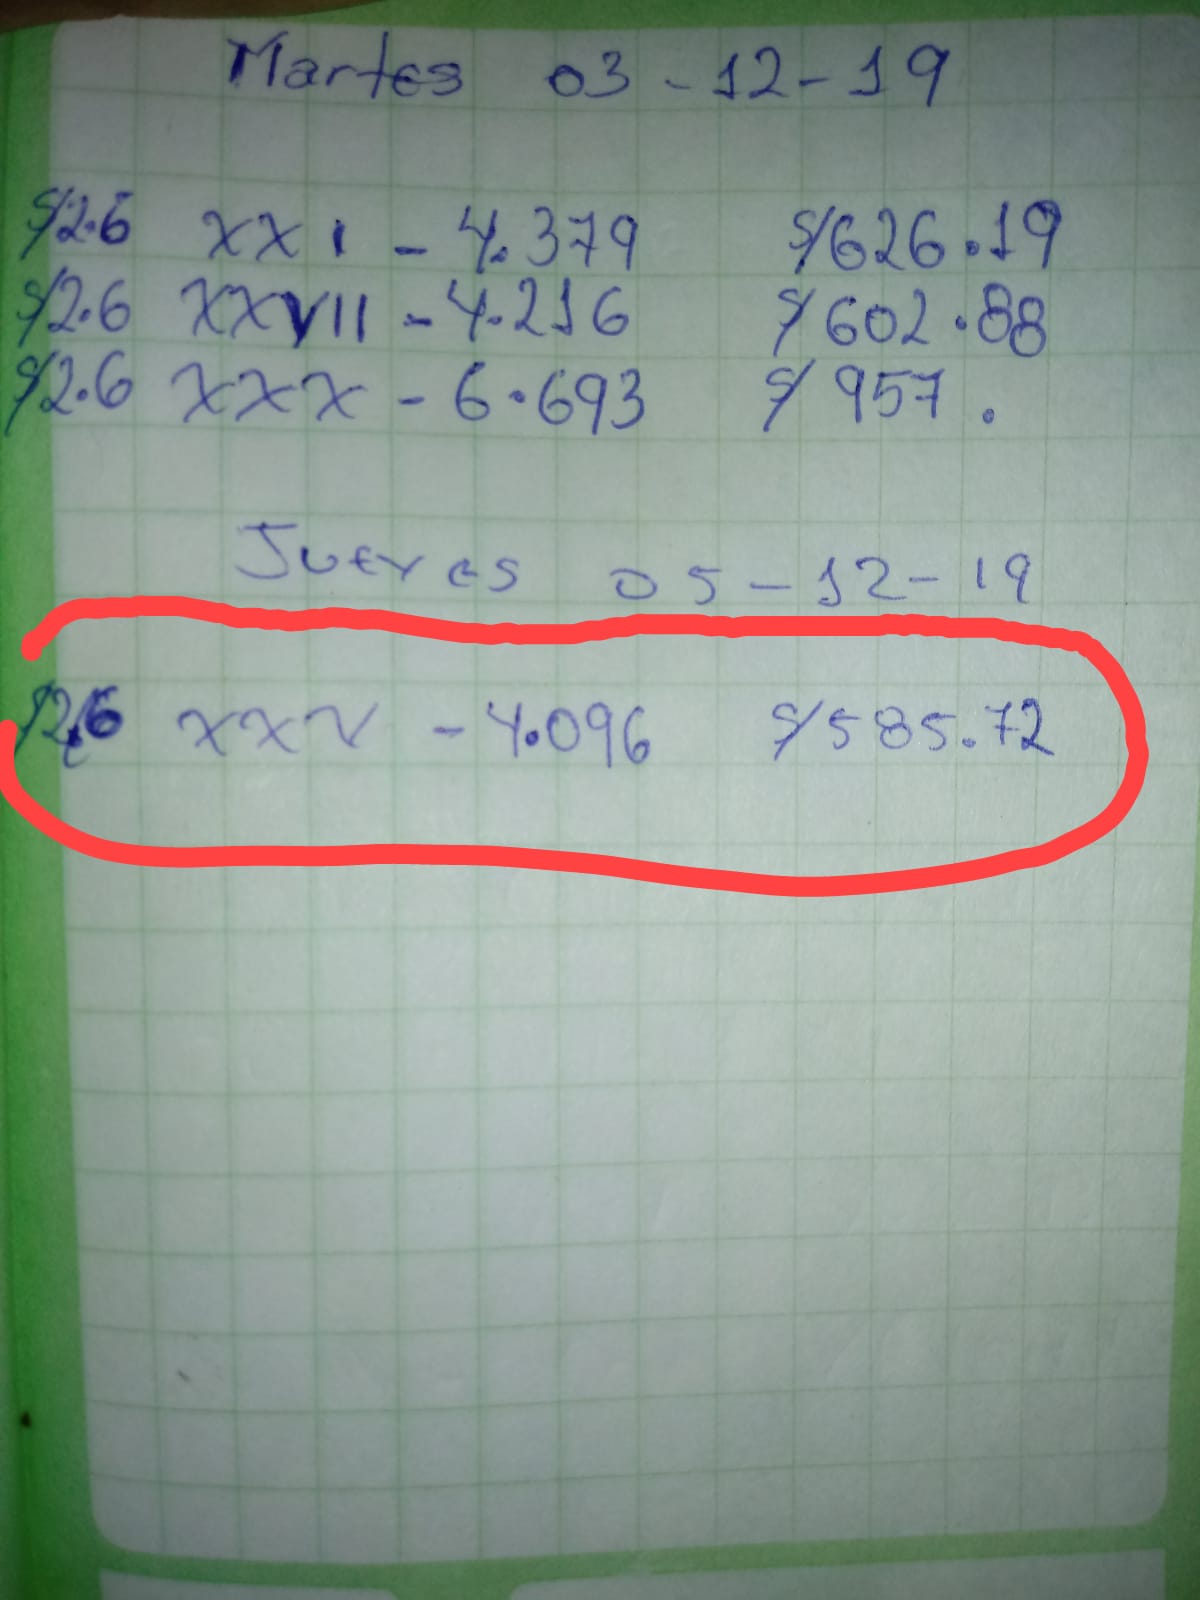 Martes 03-12-19
S/2.6 XXI - 4.379 S/626.19
S/2.6 XXVII - 4.216 S/602.88
S/2.6 XXX - 6.693 S/957.
Jueves 05-12-19
S/2.6 XXV - 4.096 S/585.72